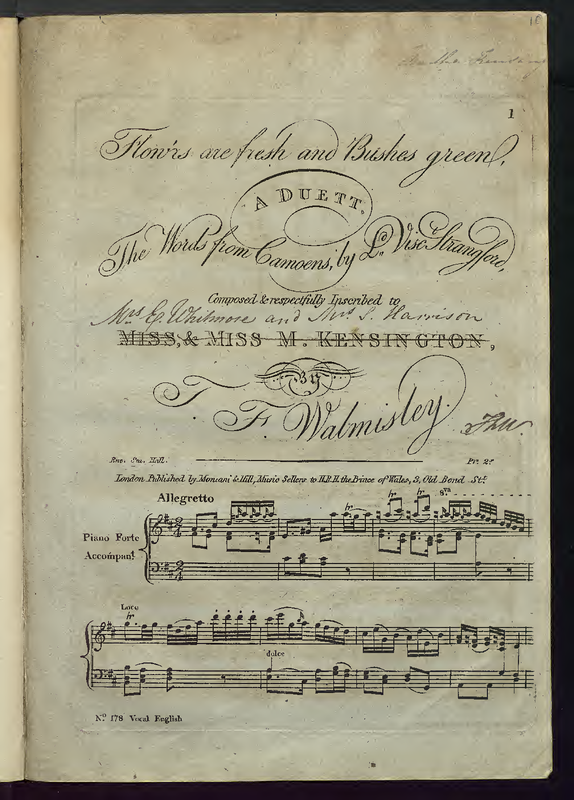 18
1
Flow'rs are fresh and Bushes green,
A DUETT.
The Words from Camoens, by Ld. Visct. Strangford,
Composed & respectfully Inscribed to
Mrs Ed. Whitmore and Mrs S. Harrison
MISS, & MISS M. KENSINGTON,
BY
T. F. Walmisley.
TFW
Ent. Sta. Hall.
Pr. 2s
London Published by Monzani & Hill, Music Sellers to H.R.H. the Prince of Wales, 3, Old Bond Strt.
Allegretto
tr tr tr 8va
Piano Forte
Accompant.
2/4
2/4
Loco
tr
dolce
No. 178 Vocal English